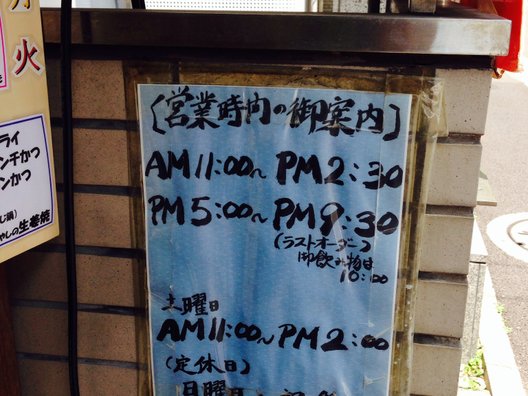 月
火
ライ
ン千かつ
ンかつ
じ鍋)
やしの生姜焼
[営業時間の御案内]
AM11:00~PM2:30
PM5:00~PM9:30
(ラストオーダー)
御飲み物は
10:00
土曜日
AM11:00~PM2:00
(定休日)
日曜日